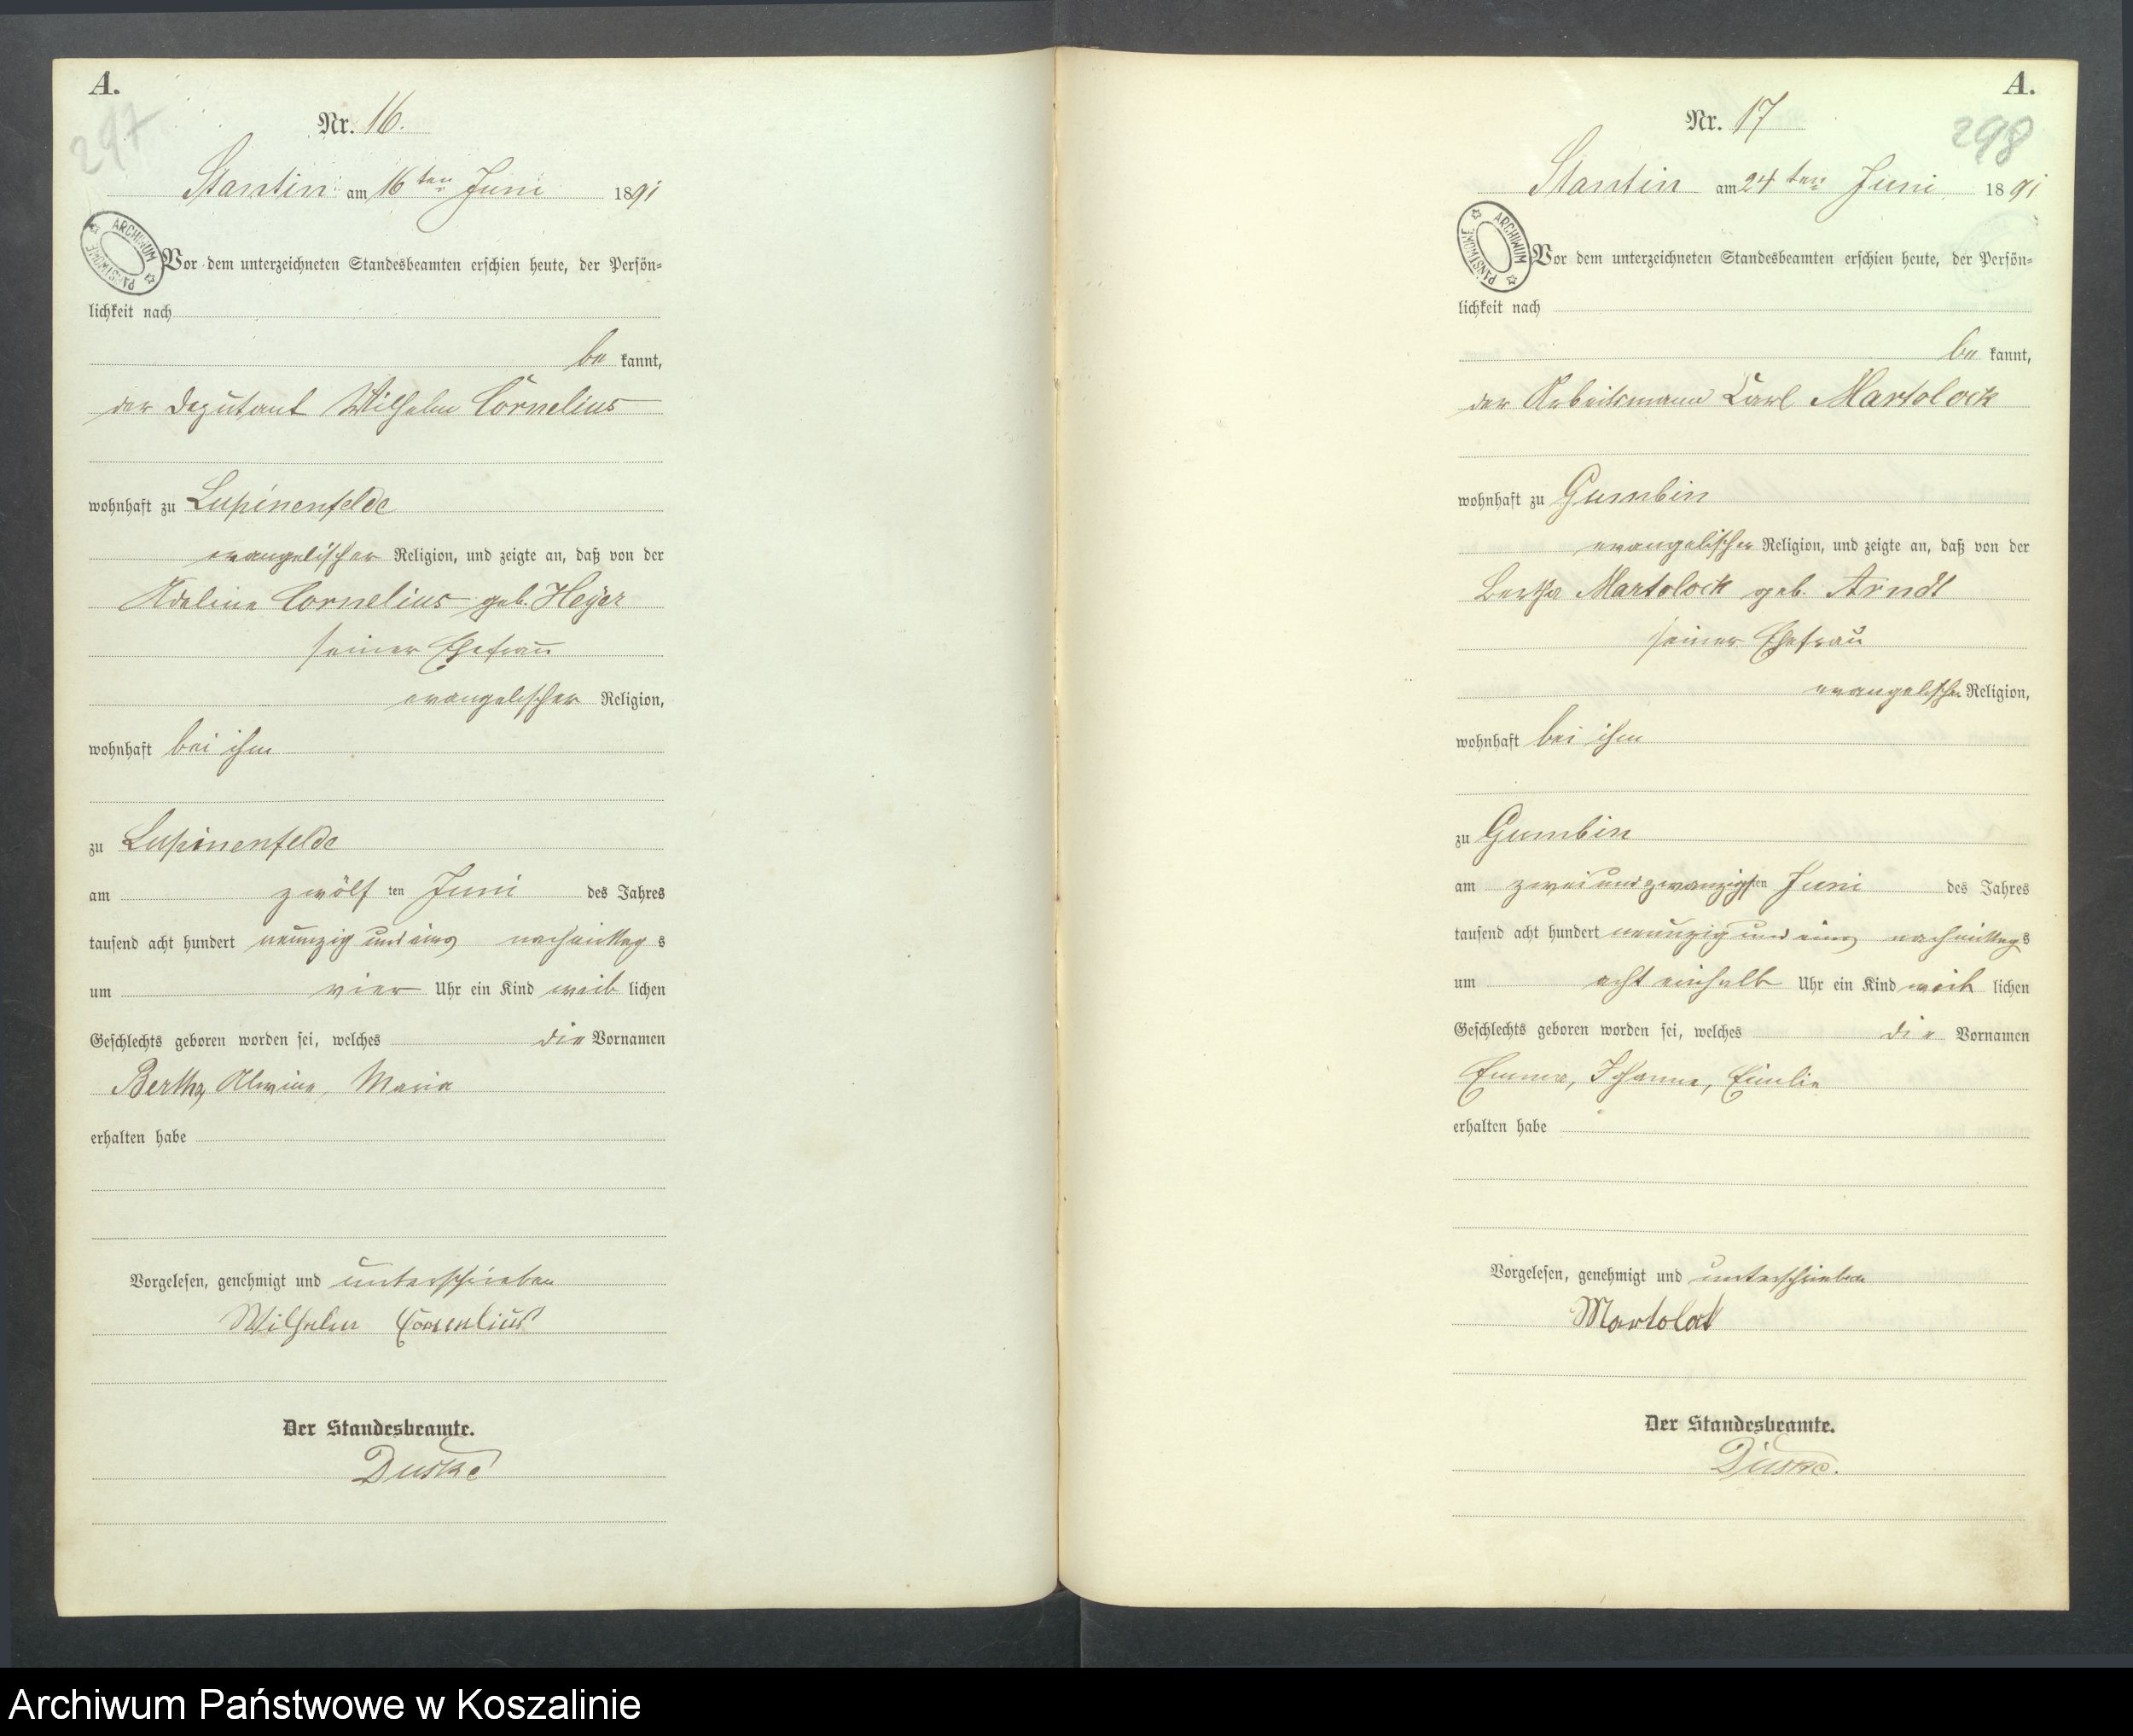 A.
297
Nr. 16.
Stantin am 16ten Juni 1891
ARCHIWUM PAŃSTWOWE
Vor dem unterzeichneten Standesbeamten erschien heute, der Persön=
lichkeit nach
be kannt,
der Deputant Wilhelm Cornelius
wohnhaft zu Lupinenfelde
evangelischer Religion, und zeigte an, daß von der
Adeline Cornelius geb. Heyer
seiner Ehefrau
evangelischer Religion,
wohnhaft bei ihm
zu Lupinenfelde
am zwölf ten Juni des Jahres
tausend acht hundert neunzig und eins nachmittag s
um vier Uhr ein Kind weib lichen
Geschlechts geboren worden sei, welches die Vornamen
Bertha, Alwine, Maria
erhalten habe
Vorgelesen, genehmigt und unterschrieben
Wilhelm Cornelius
Der Standesbeamte.
Duske
A.
298
Nr. 17
Stantin am 24ten Juni 1891
ARCHIWUM PAŃSTWOWE
Vor dem unterzeichneten Standesbeamten erschien heute, der Persön=
lichkeit nach
be kannt,
der Arbeitsmann Carl Martolock
wohnhaft zu Gumbin
evangelischer Religion, und zeigte an, daß von der
Bertha Martolock geb. Arndt
seiner Ehefrau
evangelischer Religion,
wohnhaft bei ihm
zu Gumbin
am zweiundzwanzigsten Juni des Jahres
tausend acht hundert neunzig und eins nachmittags
um acht einhalb Uhr ein Kind weib lichen
Geschlechts geboren worden sei, welches die Vornamen
Emma, Johanne, Emilie
erhalten habe
Vorgelesen, genehmigt und unterschrieben
Martolok
Der Standesbeamte.
Duske.
Archiwum Państwowe w Koszalinie